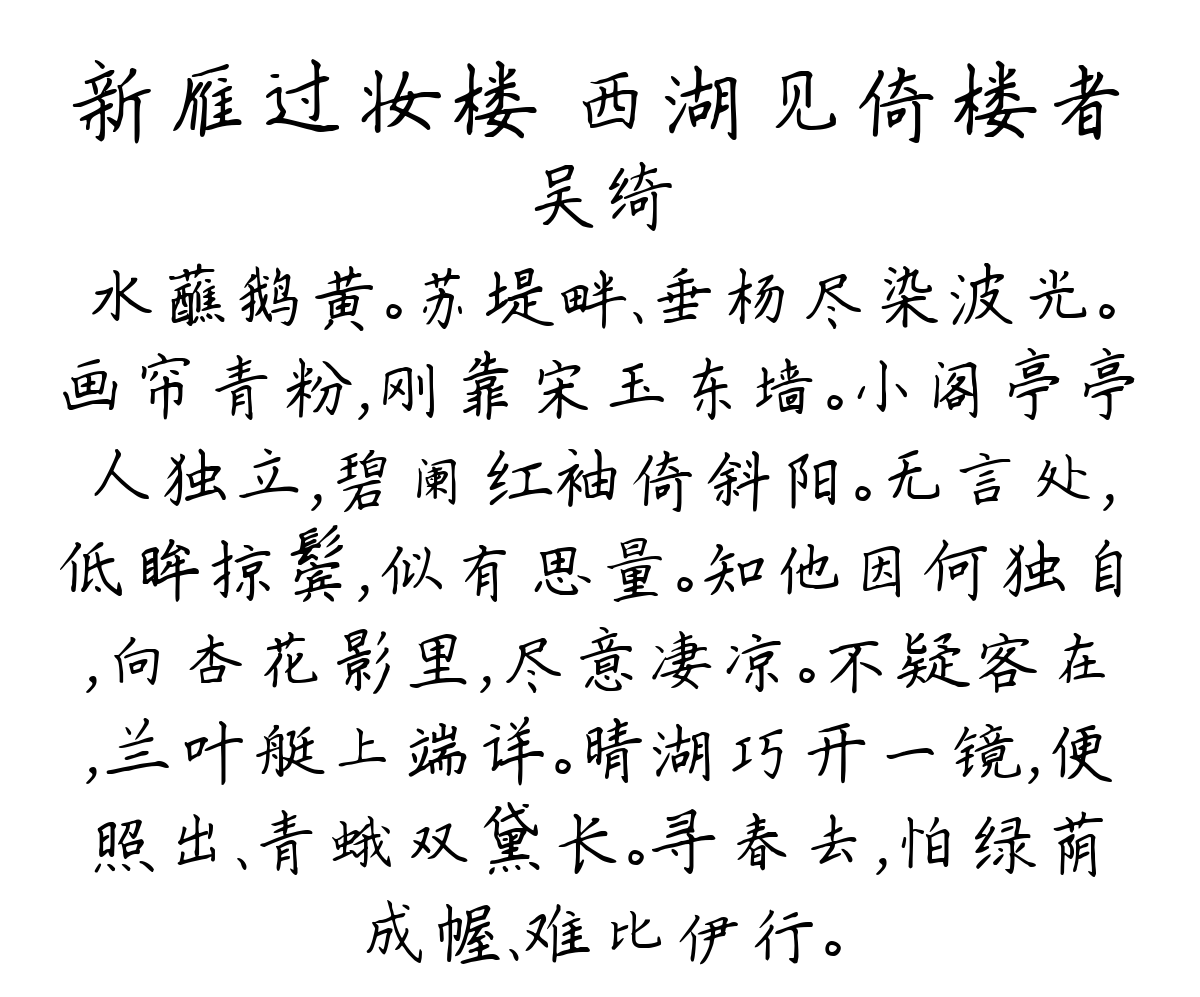 新雁过妆楼 西湖见倚楼者
吴绮
水蘸鹅黄。苏堤畔、垂杨尽染波光。
画帘青粉,刚靠宋玉东墙。小阁亭亭
人独立,碧阑红袖倚斜阳。无言处,
低眸掠鬓,似有思量。知他因何独自
,向杏花影里,尽意凄凉。不疑客在
,兰叶艇上端详。晴湖巧开一镜,便
照出、青蛾双黛长。寻春去,怕绿荫
成幄、难比伊行。